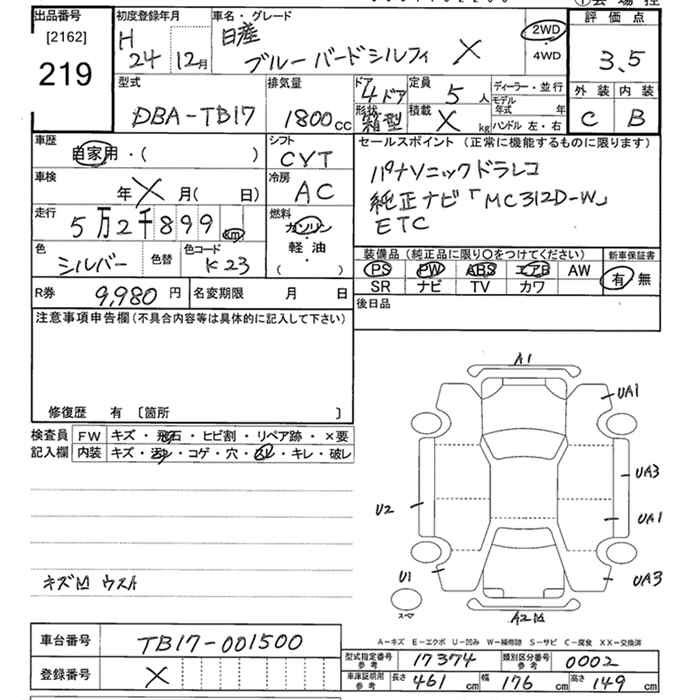 ①会場控
出品番号
[2162]
219
初度登録年月
H 24 12月
車名・グレード
日産
ブルーバードシルフィ X
2WD
・
4WD
評価点
3.5
外装 内装
C B
型式
DBA-TB17
排気量
1800cc
ドア
4ドア
形状
箱型
定員
5人
積載
X kg
ディーラー・並行
モデル年式 年
ハンドル 左・右
車歴
自家用・( )
車検
年X月( 日)
走行
5万2千899 km
色
シルバー
色替
色コード
K23
シフト
CVT
冷房
AC
燃料
ガソリン
軽・油
( )
セールスポイント (正常に機能するものに限ります)
パナソニックドラレコ
純正ナビ「MC312D-W」
ETC
装備品(純正品に限り○をつけてください)
PS PW ABS エアB AW
SR ナビ TV カワ
新車保証書
有 無
R券 9,980円 名変期限 月 日
後日品
注意事項申告欄(不具合内容等は具体的に記入して下さい)
修復歴 有 〔箇所 〕
検査員記入欄
FW キズ・飛石・ヒビ割・リペア跡・×要
内装 キズ・汚れ・コゲ・穴・・キレ・破レ
キズ凹 ウスA
A1
UA1
UA3
U2
UA1
U1
UA3
A2凹
A-キズ E-エクボ U-凹み W-補修跡 S-サビ C-腐食 XX-交換済
車台番号 TB17-001500
登録番号 X
型式指定番号参考 17374
類別区分番号参考 0002
車庫証明用参考 長さ 461 cm 幅 176 cm 高さ 149 cm